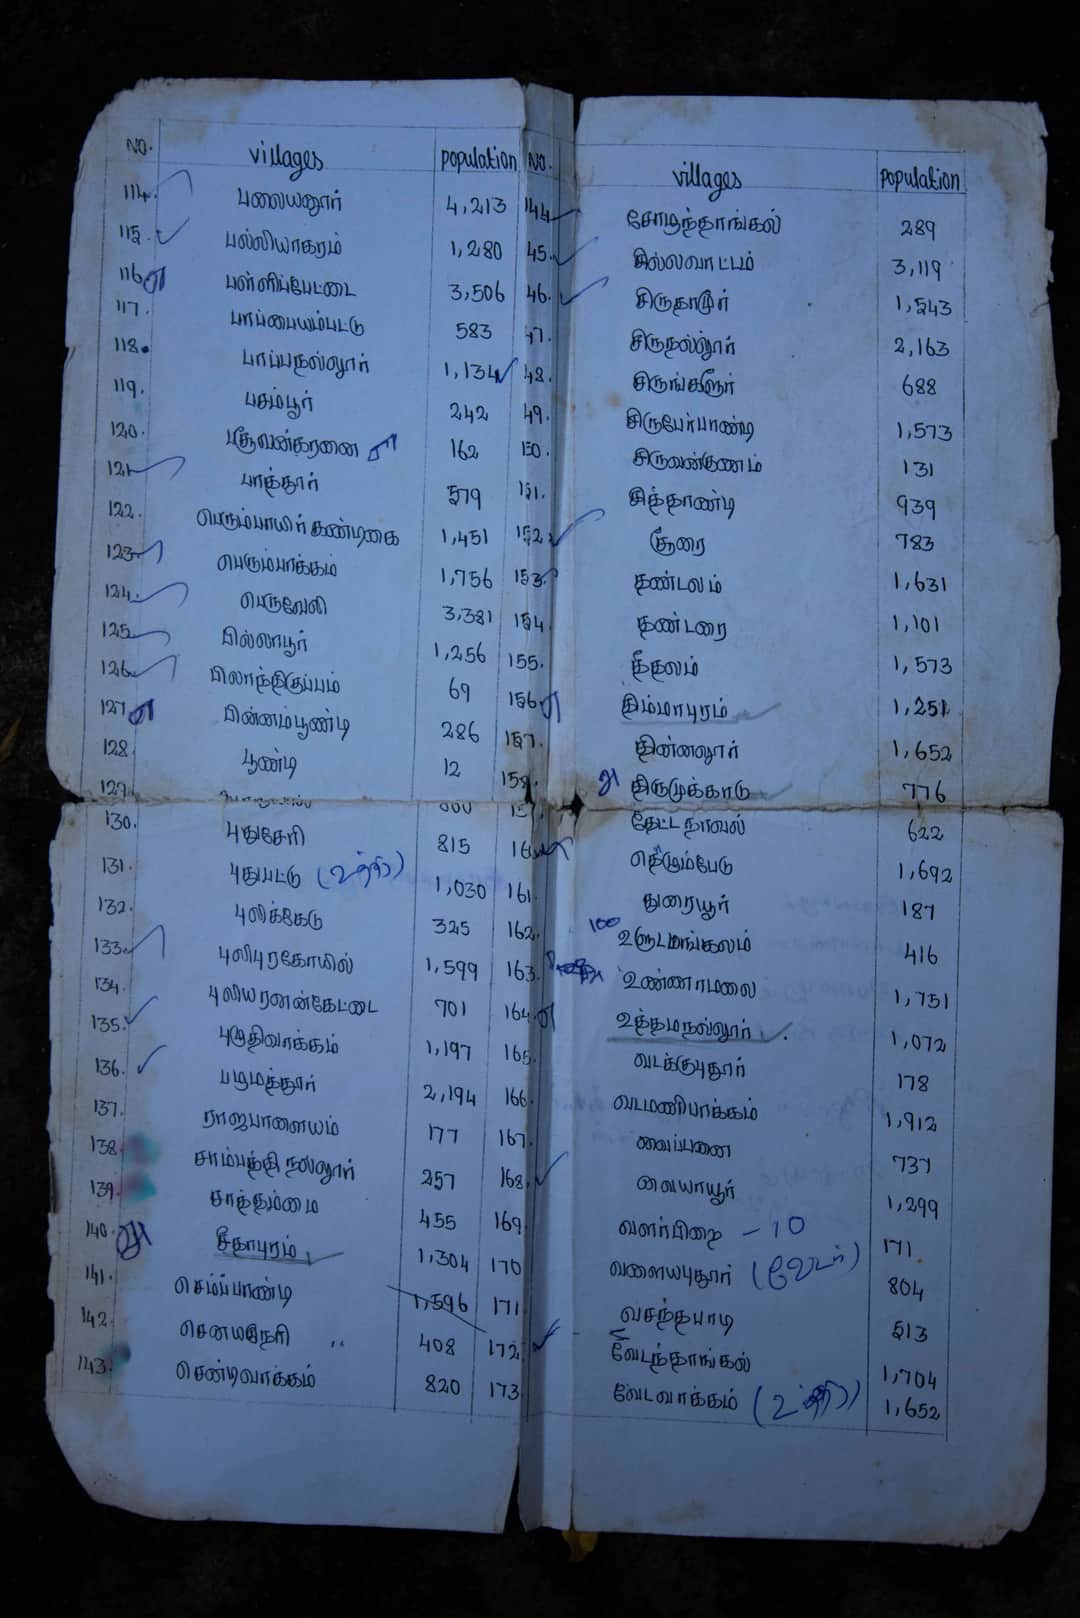 NO. villages population
114. பலையனூர் 4,213
115. பல்லியாகரம் 1,280
116 பள்ளிப்பேட்டை 3,506
117. பாப்பையம்பட்டு 583
118. பாப்பநல்லூர் 1,134
119. பசும்பூர் 242
120. 162
121 பாத்தூர் 579
122. பெரும்பாயிர் கண்டிகை 1,451
123. பெரும்பாக்கம் 1,756
124. பெருவேலி 3,381
125. பில்லாபூர் 1,256
126. பிலாந்திகுப்பம் 69
127 பின்னம்பூண்டி 286
128. பூண்டி 12
129.
130. புதுசேரி 815
131. புதுபட்டு 1,030
132. புலிக்கேடு 325
133. புலிபுரகோயில் 1,599
134. புலியரனன்கேட்டை 701
135. புழுதிவாக்கம் 1,197
136. பழமத்தூர் 2,194
137. ராஜபாளையம் 177
138. சாம்பத்தி நல்லூர் 257
139. சாத்தம்மை 455
140. சீதாபுரம் 1,304
141. செம்பூண்டி 1,596
142. செனயநேரி 408
143. செண்டிவாக்கம் 820
NO. villages population
144 சோழந்தாங்கல் 289
45. சில்லவாட்டம் 3,119
46. சிருதாமூர் 1,543
47. சிருநல்லூர் 2,163
48. சிருங்களூர் 688
49. சிருபேர்பாண்டி 1,573
150. சிருவன்குணம் 131
151. சித்தாண்டி 939
152 சூரை 783
153 தண்டலம் 1,631
154. தண்டரை 1,101
155. தீதலம் 1,573
156 திம்மாபுரம் 1,251
157. தின்னலூர் 1,652
158. திருமுக்காடு 776
தேட்டநாவல் 622
தெழும்பேடு 1,692
161 துரையூர் 187
162. 100 உளுடமங்கலம் 416
163. உண்ணாமலை 1,751
164 உத்தமநல்லூர் 1,072
165. வடக்குபுதூர் 178
166. வடமணிபாக்கம் 1,912
167. வைப்பனை 737
168 வையாயூர் 1,299
169. வளர்பிறை - 10 171
170 வளையபுதூர் 804
171 வசந்தபாடி 513
172 வேடந்தாங்கல் 1,704
173 வேடவாக்கம் 1,652